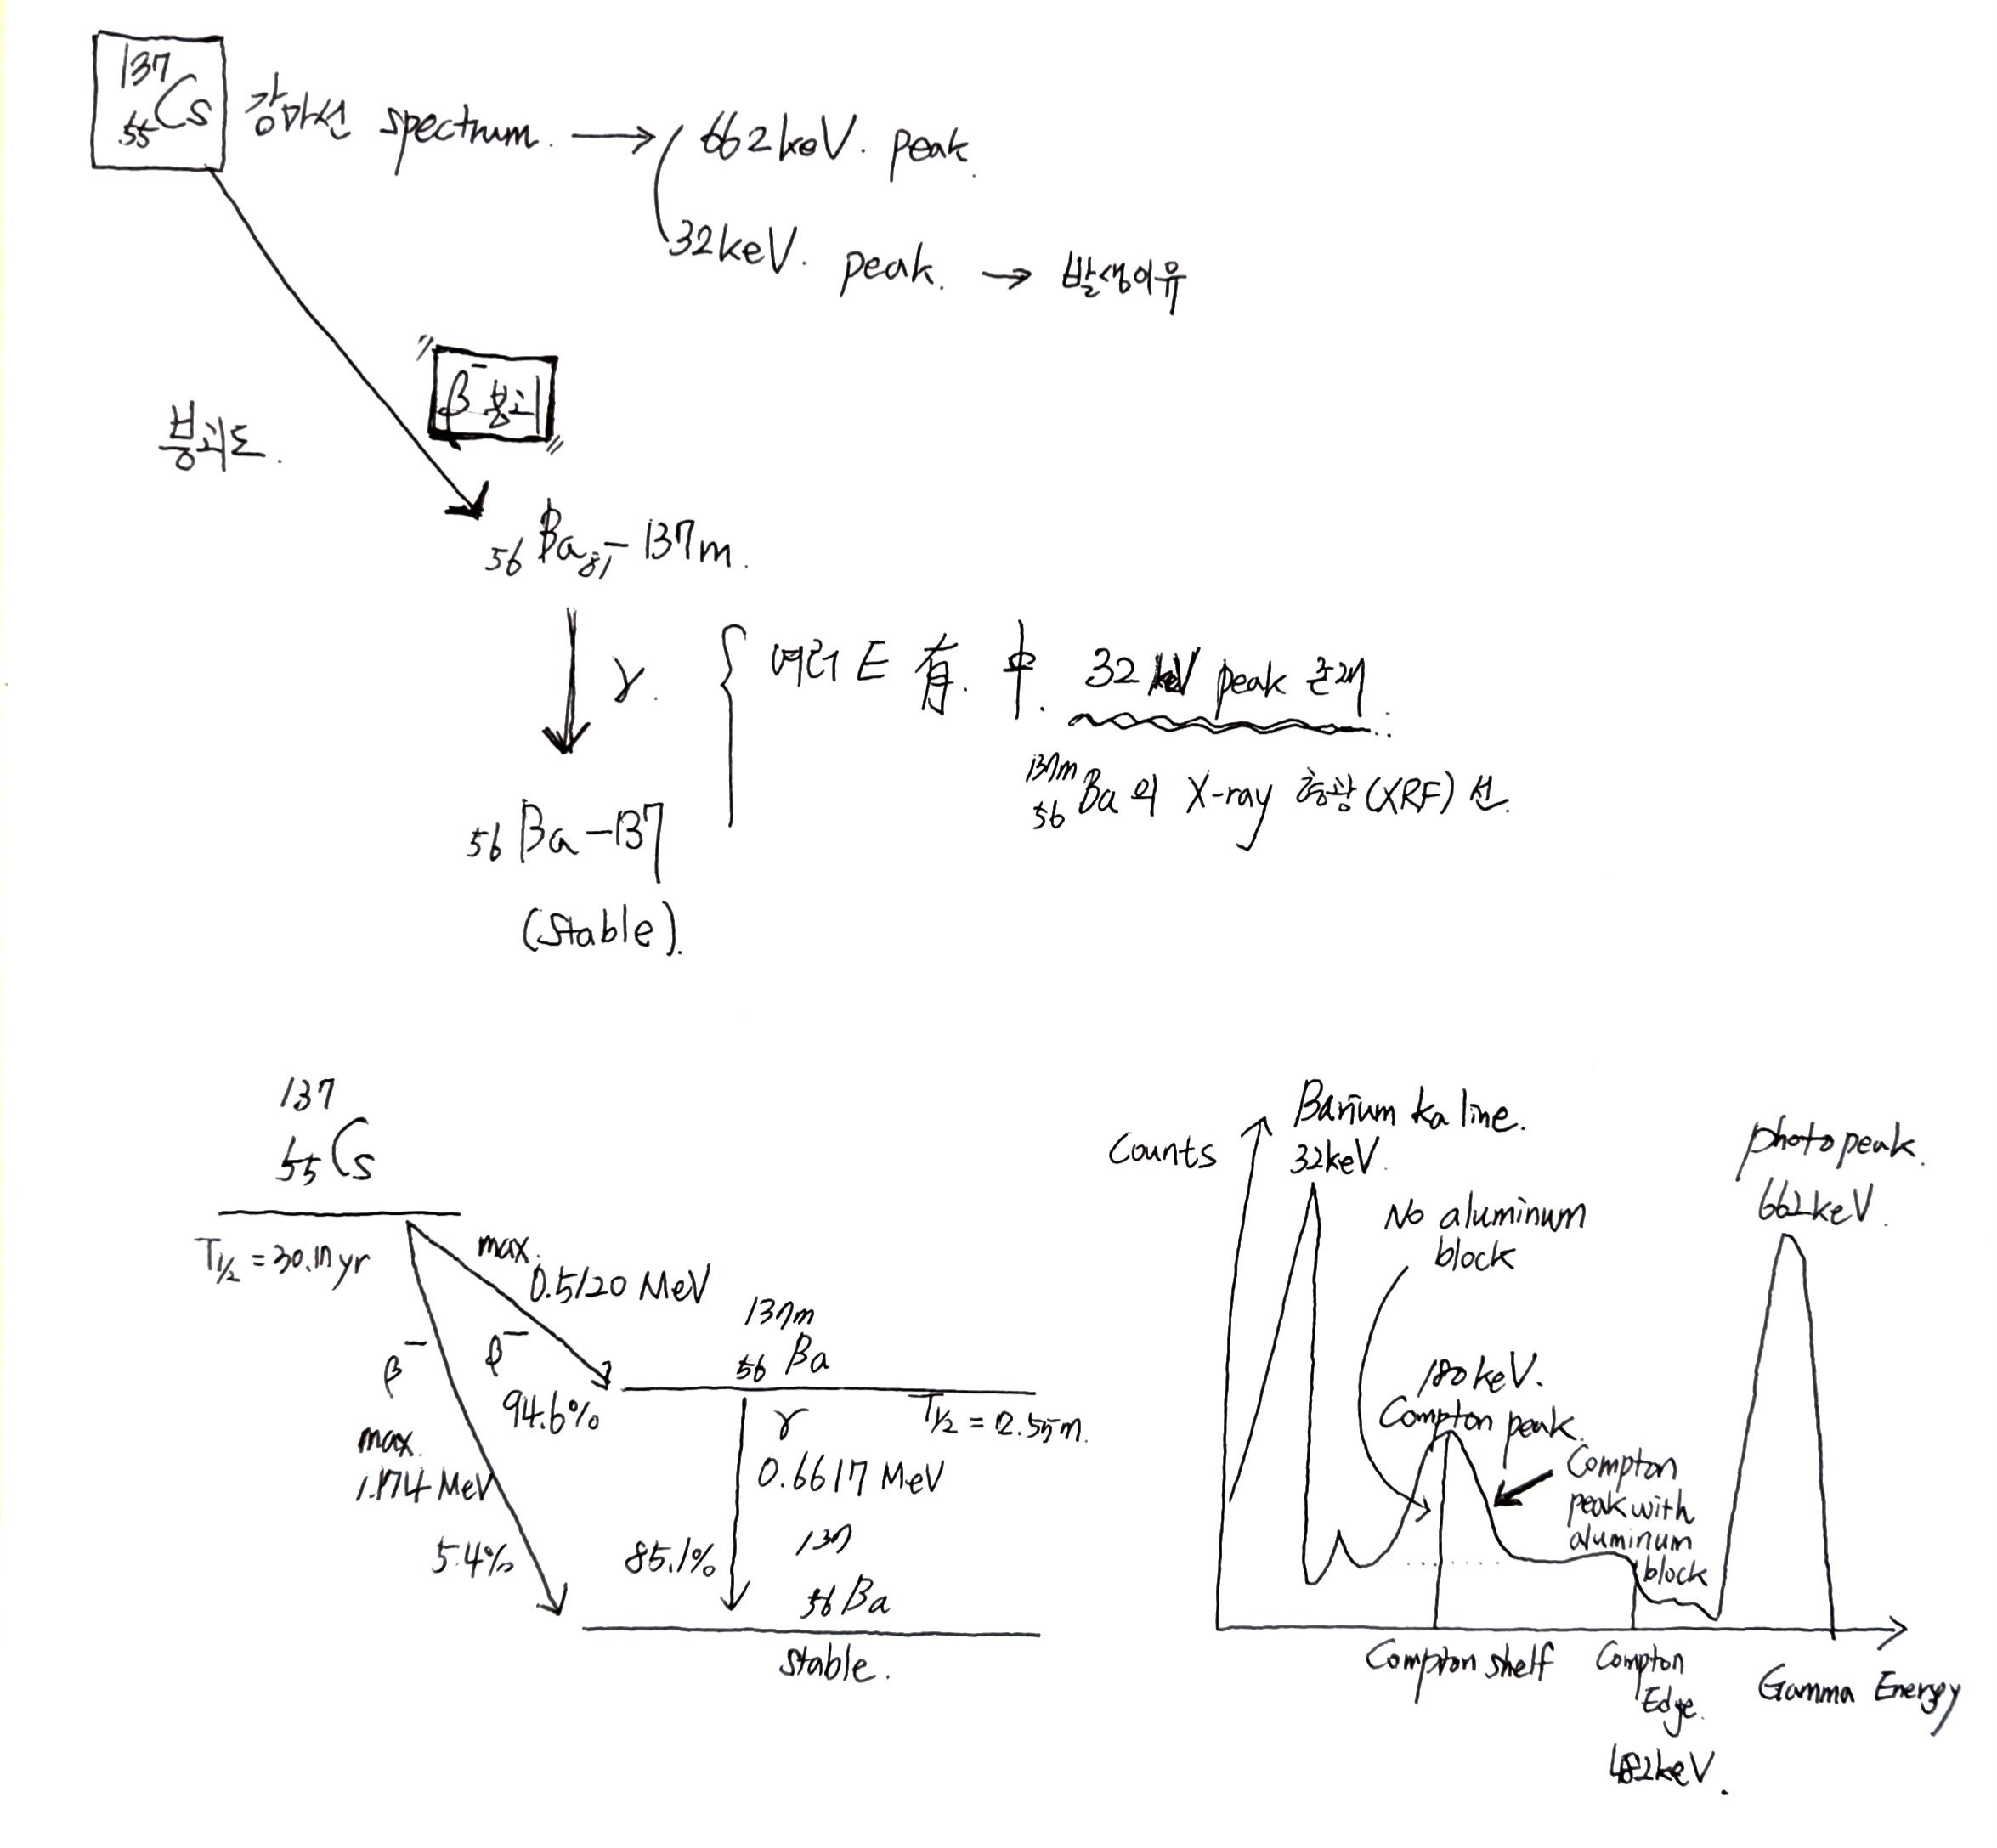 137
55 Cs 감마선 spectrum. → 662 keV. peak.
32 keV. peak. → 발생이유
β⁻ 붕괴
붕괴도.
56 Ba 81 - 137m.
γ. { 여러 E 有. 中. 32 keV peak 존재
137m
56 Ba의 X-ray 형광 (XRF) 선.
56 Ba - 137
(stable).
137
55 Cs
T1/2 = 30.17 yr
max.
0.5120 MeV
β⁻
β⁻
94.6%
max.
1.174 MeV
5.4%
137m
56 Ba
T1/2 = 2.55m.
γ
0.6617 MeV
85.1%
137
56 Ba
stable.
Counts
Barium ka line.
32keV.
No aluminum
block
180 keV.
Compton peak.
Compton
peak with
aluminum
block
photo peak.
662keV.
Compton shelf
Compton
Edge.
482keV.
Gamma Energy